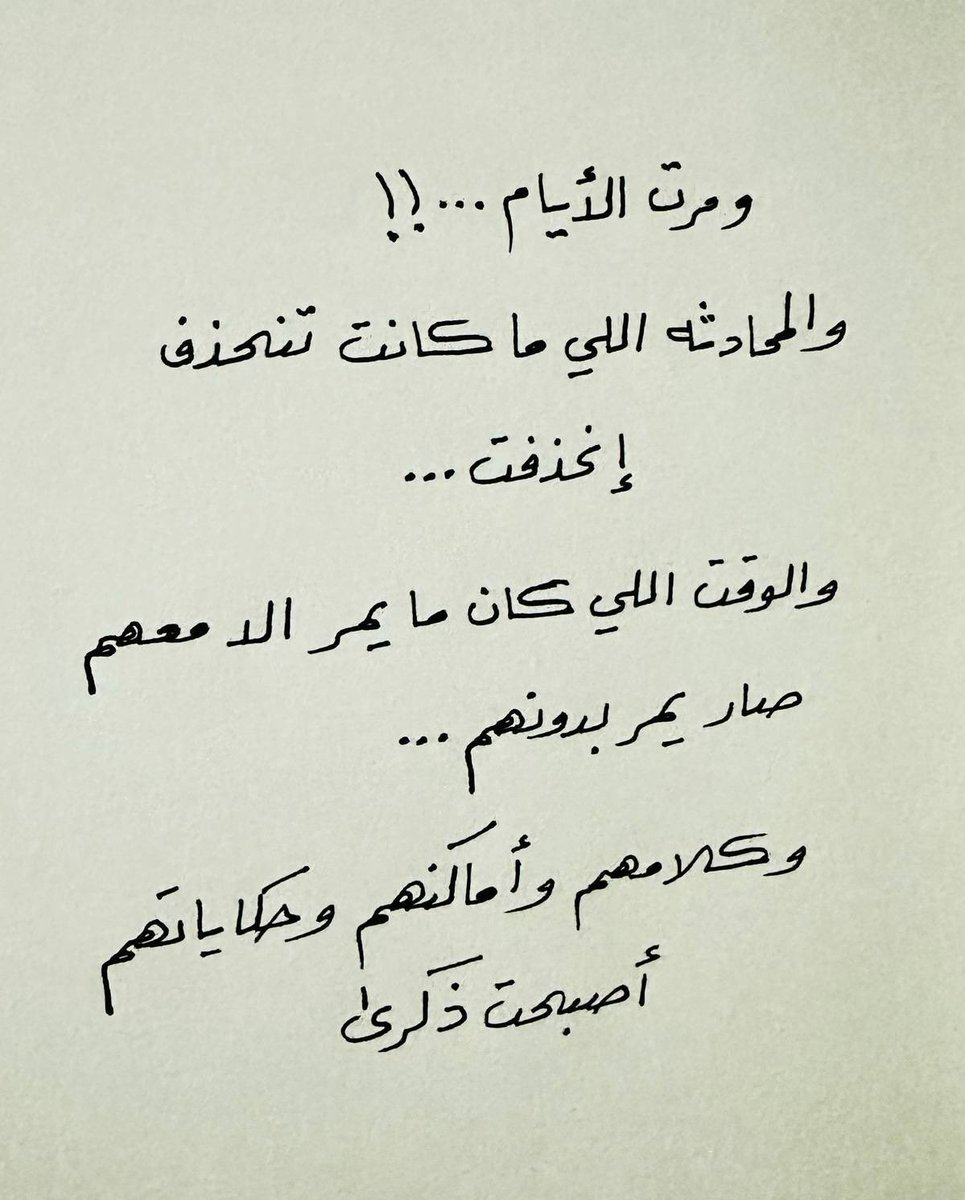 ومرت الأيام ...!!
والمحادثه اللي ما كانت تنحذف
إنحذفت ...
والوقت اللي كان ما يمر الا معهم
صار يمر بدونهم ...
وكلامهم وأماكنهم وحكاياتهم
أصبحت ذكرى